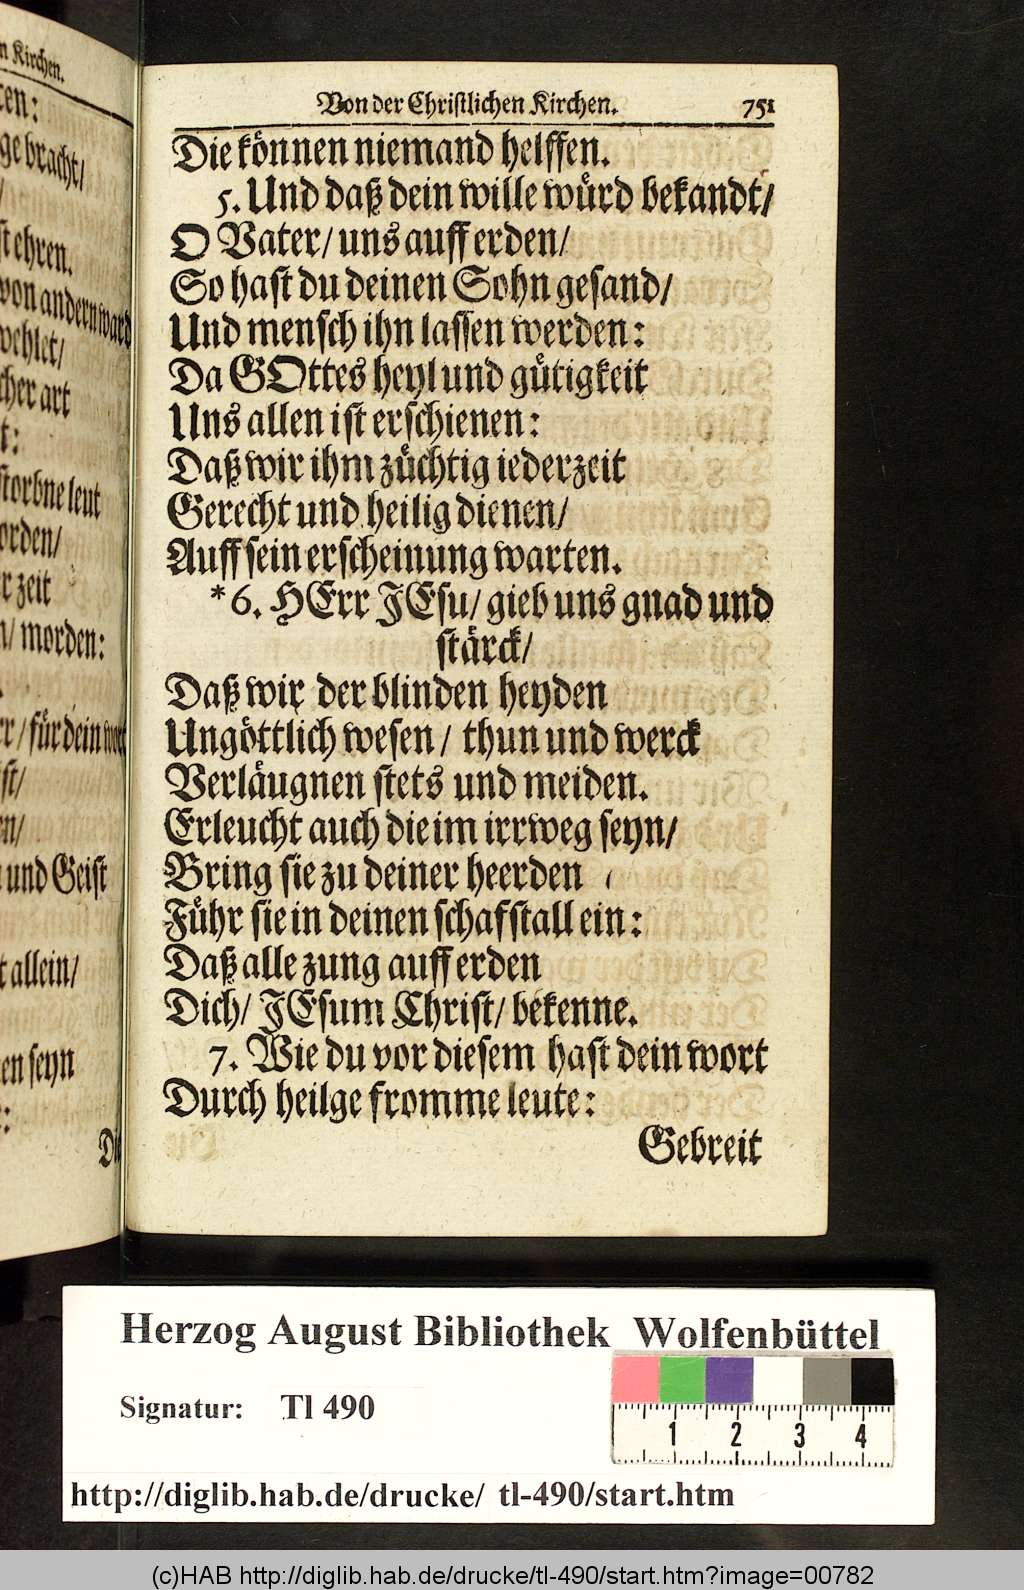 n Kirchen.
ge bracht/
st ehren.
von andern ward
wehlet/
cher art
t:
storbne leut
orden/
r zeit
n/ morden:
rr/ für dein wort
st/
en/
und Geist
t allein/
en seyn
Die
Von der Christlichen Kirchen. 751
Die können niemand helffen.
5. Und daß dein wille würd bekandt/
O Vater/ uns auff erden/
So hast du deinen Sohn gesand/
Und mensch ihn lassen werden:
Da GOttes heyl und gütigkeit
Uns allen ist erschienen:
Daß wir ihm züchtig iederzeit
Gerecht und heilig dienen/
Auff sein erscheinung warten.
*6. HErr JEsu/ gieb uns gnad und
stärck/
Daß wir der blinden heyden
Ungöttlich wesen/ thun und werck
Verläugnen stets und meiden.
Erleucht auch die im irrweg seyn/
Bring sie zu deiner heerden
Führ sie in deinen schafstall ein:
Daß alle zung auff erden
Dich/ JEsum Christ/ bekenne.
7. Wie du vor diesem hast dein wort
Durch heilge fromme leute:
Gebreit
Herzog August Bibliothek Wolfenbüttel
Signatur: Tl 490
1 2 3 4
http://diglib.hab.de/drucke/ tl-490/start.htm
(c)HAB http://diglib.hab.de/drucke/tl-490/start.htm?image=00782